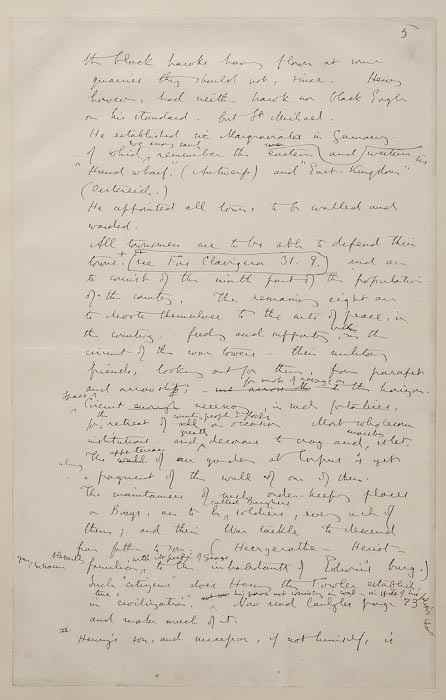 5
the black hawks have flown at some
quarries they should not, since. Henry
however, had neither hawk nor black Eagle
on his standard. but St Michael.
He established six Margravates in Germany
of which, remember the eastern and western
(Antwerp) and "East-Kingdom"
He appointed all towns to be walled and
warded.
All townsmen are to be able to defend their
towns. (see Fors Clavigera 31. 9.) and are
to consist of the ninth part of the population
of the country. The remaining eight are
to devote themselves to the arts of peace, in
the country feeding and supporting in the
circuit of the war towers - their military
friends, looking out for them, from parapet
and arrowslit, the horizon.
Circuit enough necessary in such fortalices,
for retreat of on occasion Most wholesome
institutions and decorous to crag and islet.
The wall of our garden at Corpus is yet
a fragment of the wall of one of them.
The maintainers of such order-keeping places
or Burgs, are to be soldiers, every inch of
them; and their War tackle to descend
from father to son (Heergeraethe - Heriot -
familiar, to the inhabitants of Edwin's burg.)
Such 'citizens' does Henry the Fowler establish
in civilization. Now read Carlyle page 73
and make much of it.
Henry's son, and successor, if not himself, is